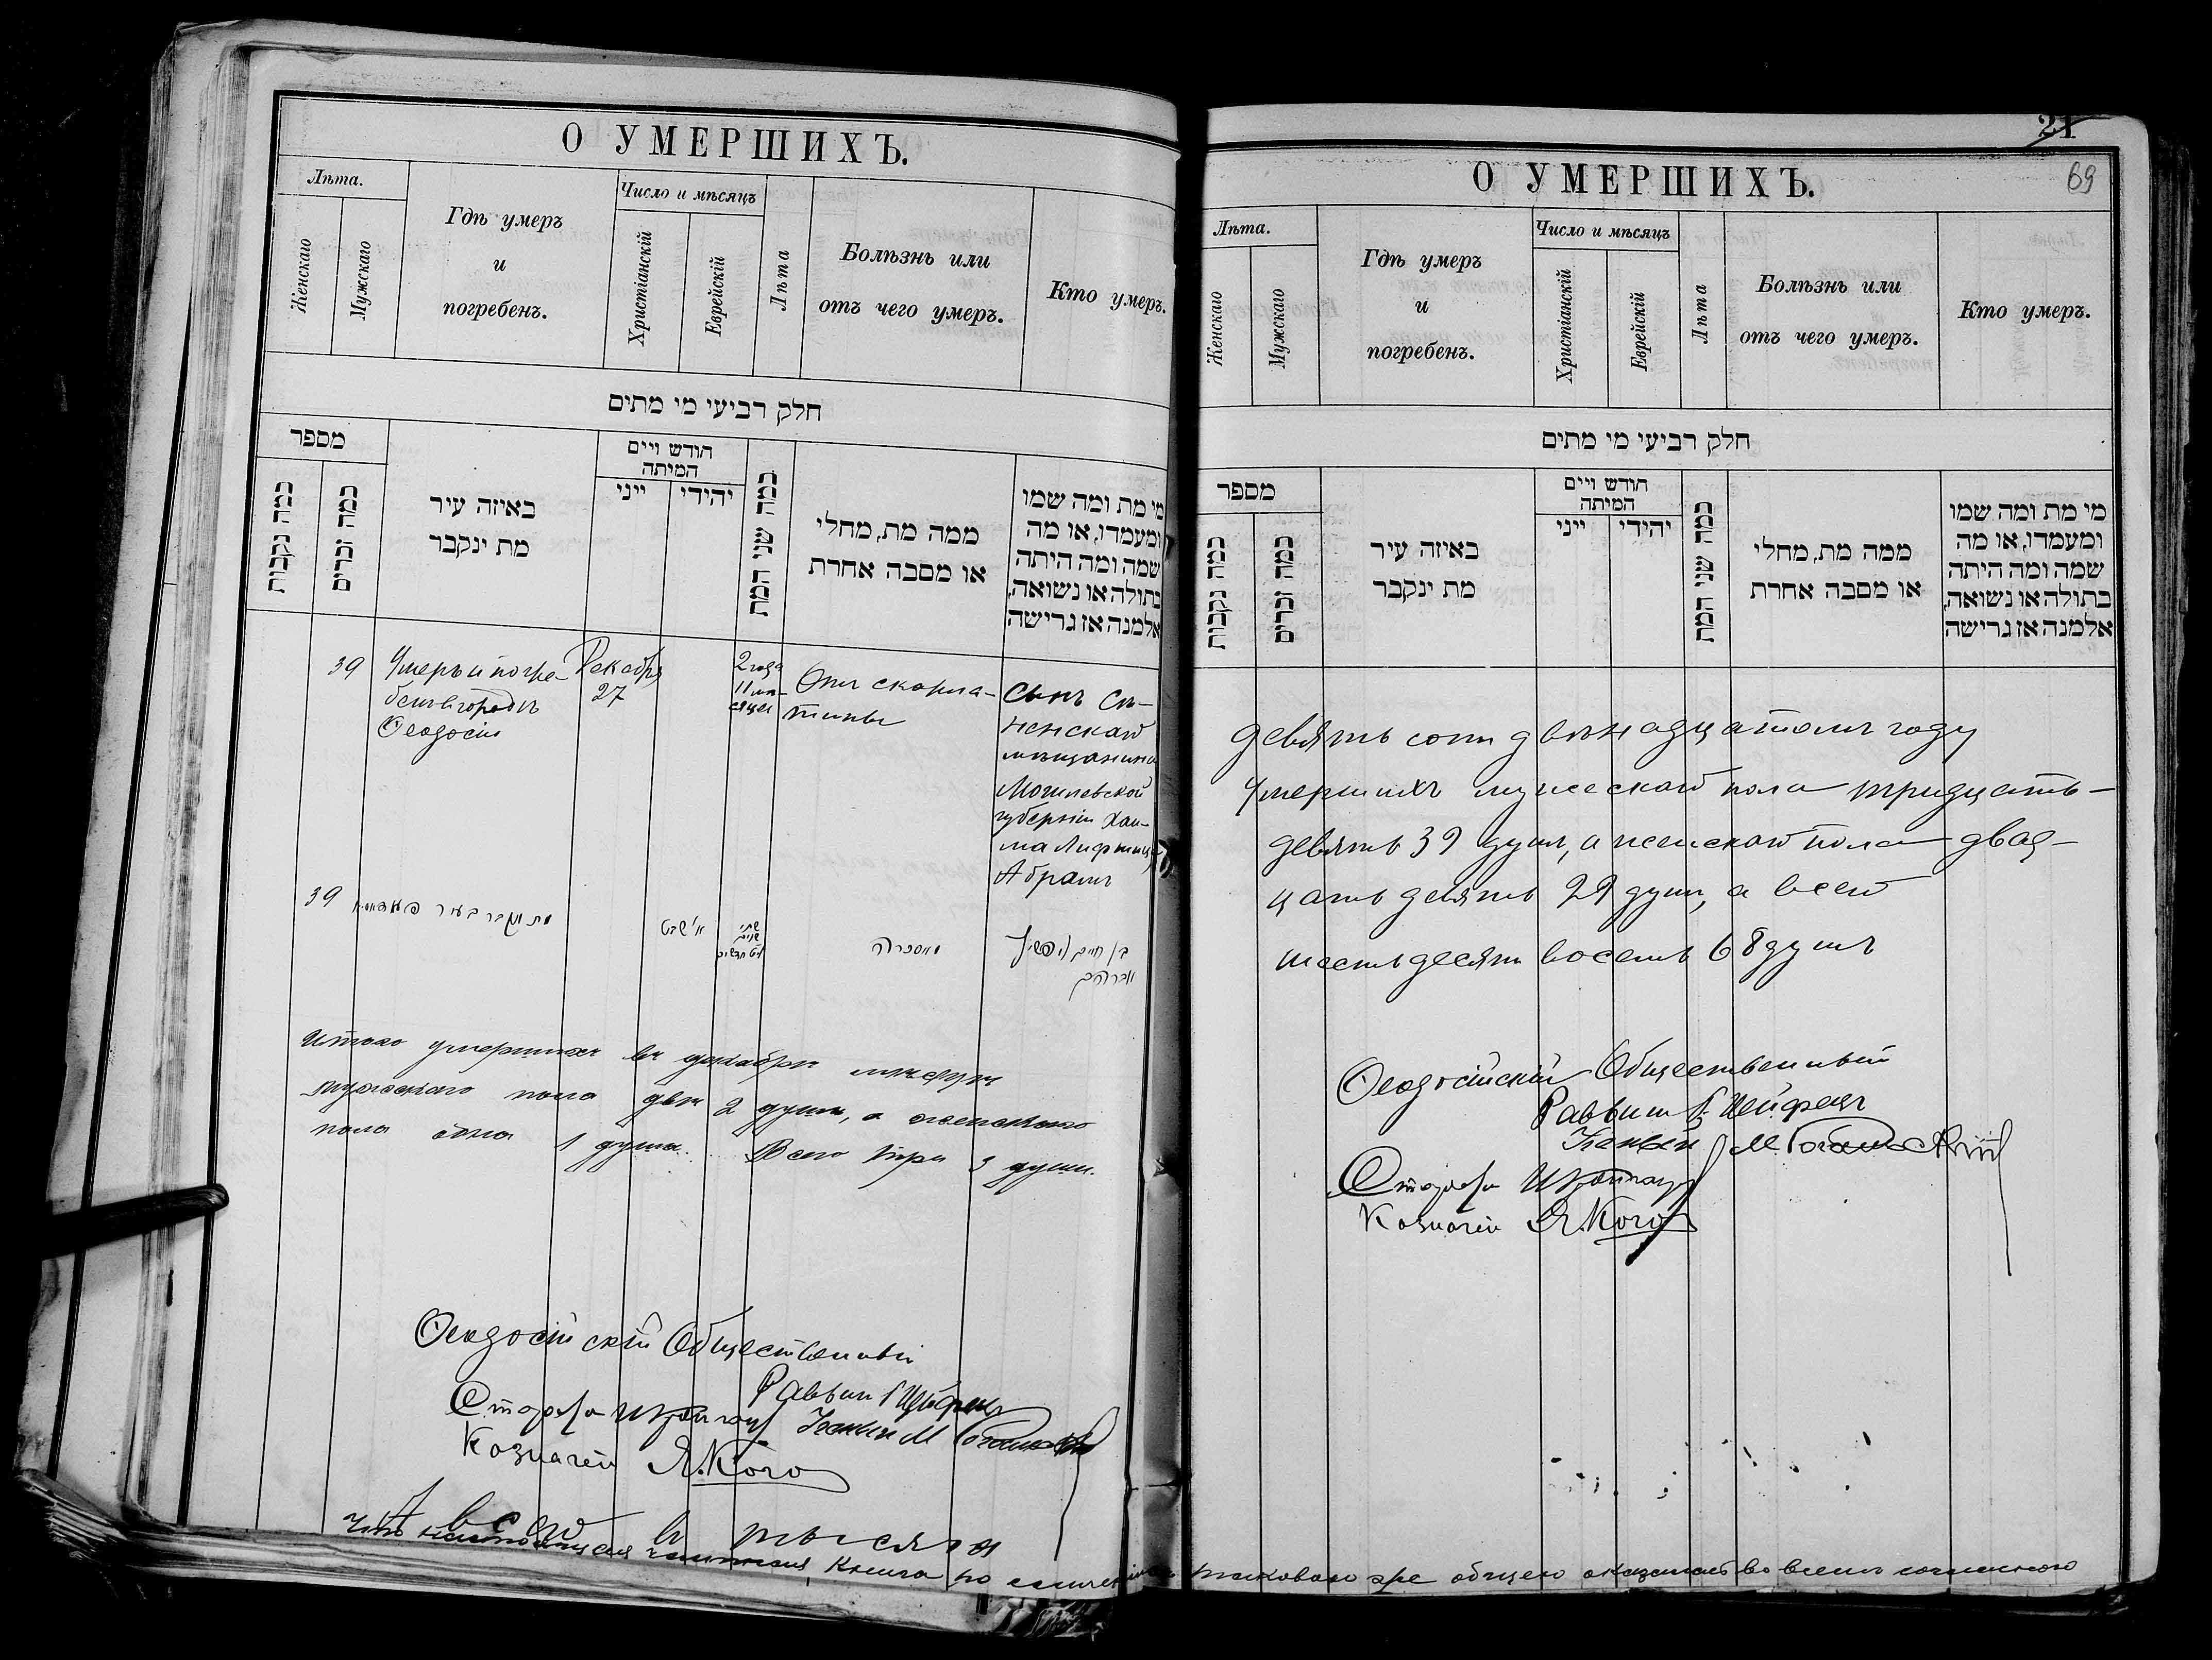 О УМЕРШИХЪ.
Лѣта.
Женскаго
Мужскаго
Гдѣ умеръ
и
погребенъ.
Число и мѣсяцъ
Христіанскій
Еврейскій
Лѣта
Болѣзнь или
отъ чего умеръ.
Кто умеръ.
חלק רביעי מי מתים
מספר
כמה נקבות
כמה זכרים
באיזה עיר
מת ינקבר
חודש ויים
המיתה
ייני
יהידי
כמה שני המת
ממה מת, מחלי
או מסבה אחרת
מי מת ומה שמו
ומעמדו, או מה
שמה ומה היתה
בתולה או נשואה,
אלמנה אז גרישה
39
Умеръ и погре-
бенъ въ городѣ
Ѳеодосіи
Декабря
27
2 года
11 мѣ-
сяцев
Отъ скарла-
тины
Сынъ Сѣ-
ненскаго
мѣщанина
Могилевской
губерніи Хаи-
ма Лифшица
Абрамъ
39
שתי
שנים
בן חיים ליפשיץ
אברהם
Итого умершихъ въ декабрѣ мѣсяцѣ
мужескаго пола двѣ 2 души, а женскаго
пола одна 1 душа. Всего три 3 души.
Ѳеодосійскій Общественный
Раввин
Староста
Казначей Я. Кого
А всего въ тысяча
21
69
О УМЕРШИХЪ.
Лѣта.
Женскаго
Мужскаго
Гдѣ умеръ
и
погребенъ.
Число и мѣсяцъ
Христіанскій
Еврейскій
Лѣта
Болѣзнь или
отъ чего умеръ.
Кто умеръ.
חלק רביעי מי מתים
מספר
כמה נקבות
כמה זכרים
באיזה עיר
מת ינקבר
חודש ויים
המיתה
ייני
יהידי
כמה שני המת
ממה מת, מחלי
או מסבה אחרת
מי מת ומה שמו
ומעמדו, או מה
שמה ומה היתה
בתולה או נשואה,
אלמנה אז גרישה
девятьсотъ двѣнадцатомъ году
умершихъ мужескаго пола тридцать-
девять 39 душъ, а женскаго пола двад-
цать девять 29 душ, а всего
шестьдесятъ восемь 68 душъ
Ѳеодосійскій Общественный
Раввин
Староста
Казначей Я. Кого